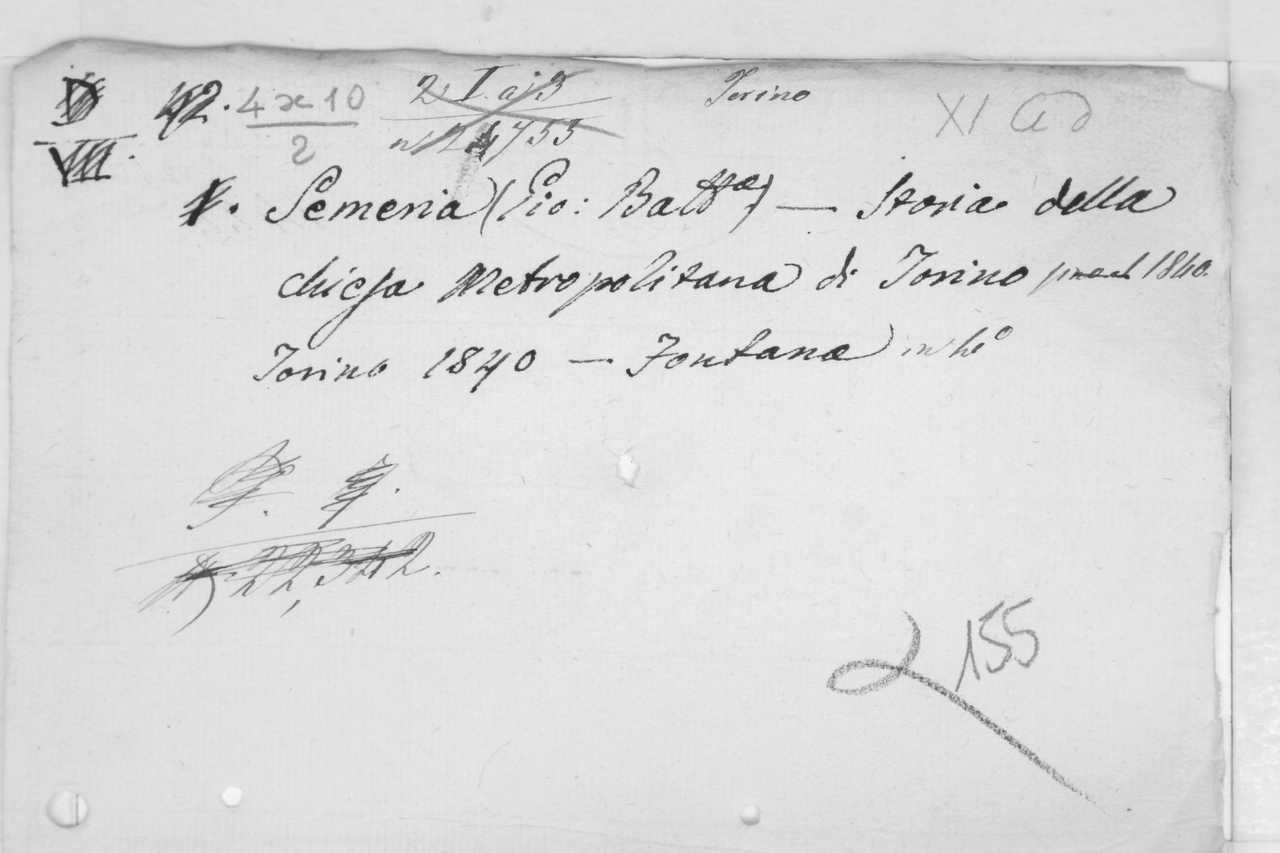 42. 4 x 10 2. I. a. 3 Torino XI a d
VIII. 2
Semeria (Gio: Batt.a) — Storia della
chiesa Metropolitana di Torino 1840.
Torino 1840 — Fontana in
22,342.
155